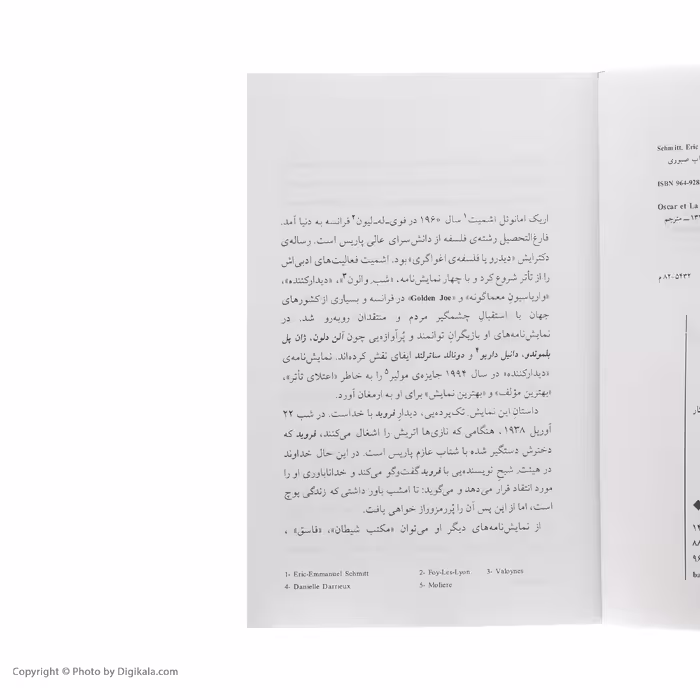 اریک امانوئل اشمیت۱ سال ۱۹۶۰ در فوی‌ـ‌له‌ـ‌لیون۲ فرانسه به دنیا آمد.
فارغ‌التحصیل رشته‌ی فلسفه از دانش‌سرای عالی پاریس است. رساله‌ی
دکترایش «دیدرو یا فلسفه‌ی اغواگری» بود. اشمیت فعالیت‌های ادبی‌اش
را از تأتر شروع کرد و با چهار نمایش‌نامه، «شب والون۳»، «دیدارکننده»،
«واریاسیون معماگونه» و «Golden Joe» در فرانسه و بسیاری از کشورهای
جهان با استقبال چشمگیر مردم و منتقدان روبه‌رو شد. در
نمایش‌نامه‌های او بازیگران توانمند و پُرآوازه‌یی چون آلن دلون، ژان پل
بلموندو، دانیل داریو۴ و دونالد ساترلند ایفای نقش کرده‌اند. نمایش‌نامه‌ی
«دیدارکننده» در سال ۱۹۹۴ جایزه‌ی مولیر۵ را به خاطر «اعتلای تأتر»،
«بهترین مؤلف» و «بهترین نمایش» برای او به ارمغان آورد.
داستان این نمایش تک‌پرده‌یی، دیدار فروید با خداست. در شب ۲۲
آوریل ۱۹۳۸، هنگامی که نازی‌ها اتریش را اشغال می‌کنند، فروید که
دخترش دستگیر شده با شتاب عازم پاریس است. در این حال خداوند
در هیئت شبح نویسنده‌یی با فروید گفت‌وگو می‌کند و خداناباوری او را
مورد انتقاد قرار می‌دهد و می‌گوید: تا امشب باور داشتی که زندگی پوچ
است، اما از این پس آن را پُررمزوراز خواهی یافت.
از نمایش‌نامه‌های دیگر او می‌توان «مکتب شیطان»، «فاسق» ،
1- Eric-Emmanuel Schmitt 2- Foy-Les-Lyon 3- Valoynes
4- Danielle Darrieux 5- Moliere
Schmitt, Eric
صبوری
ISBN 964-928
Oscar et La
مترجم
۸۲-۵۴۳۲م
Copyright © Photo by Digikala.com